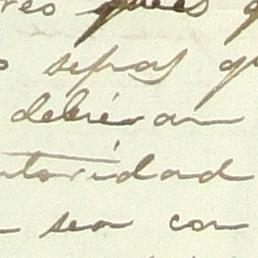 pues
sepas q
deberan
utoridad
sea con